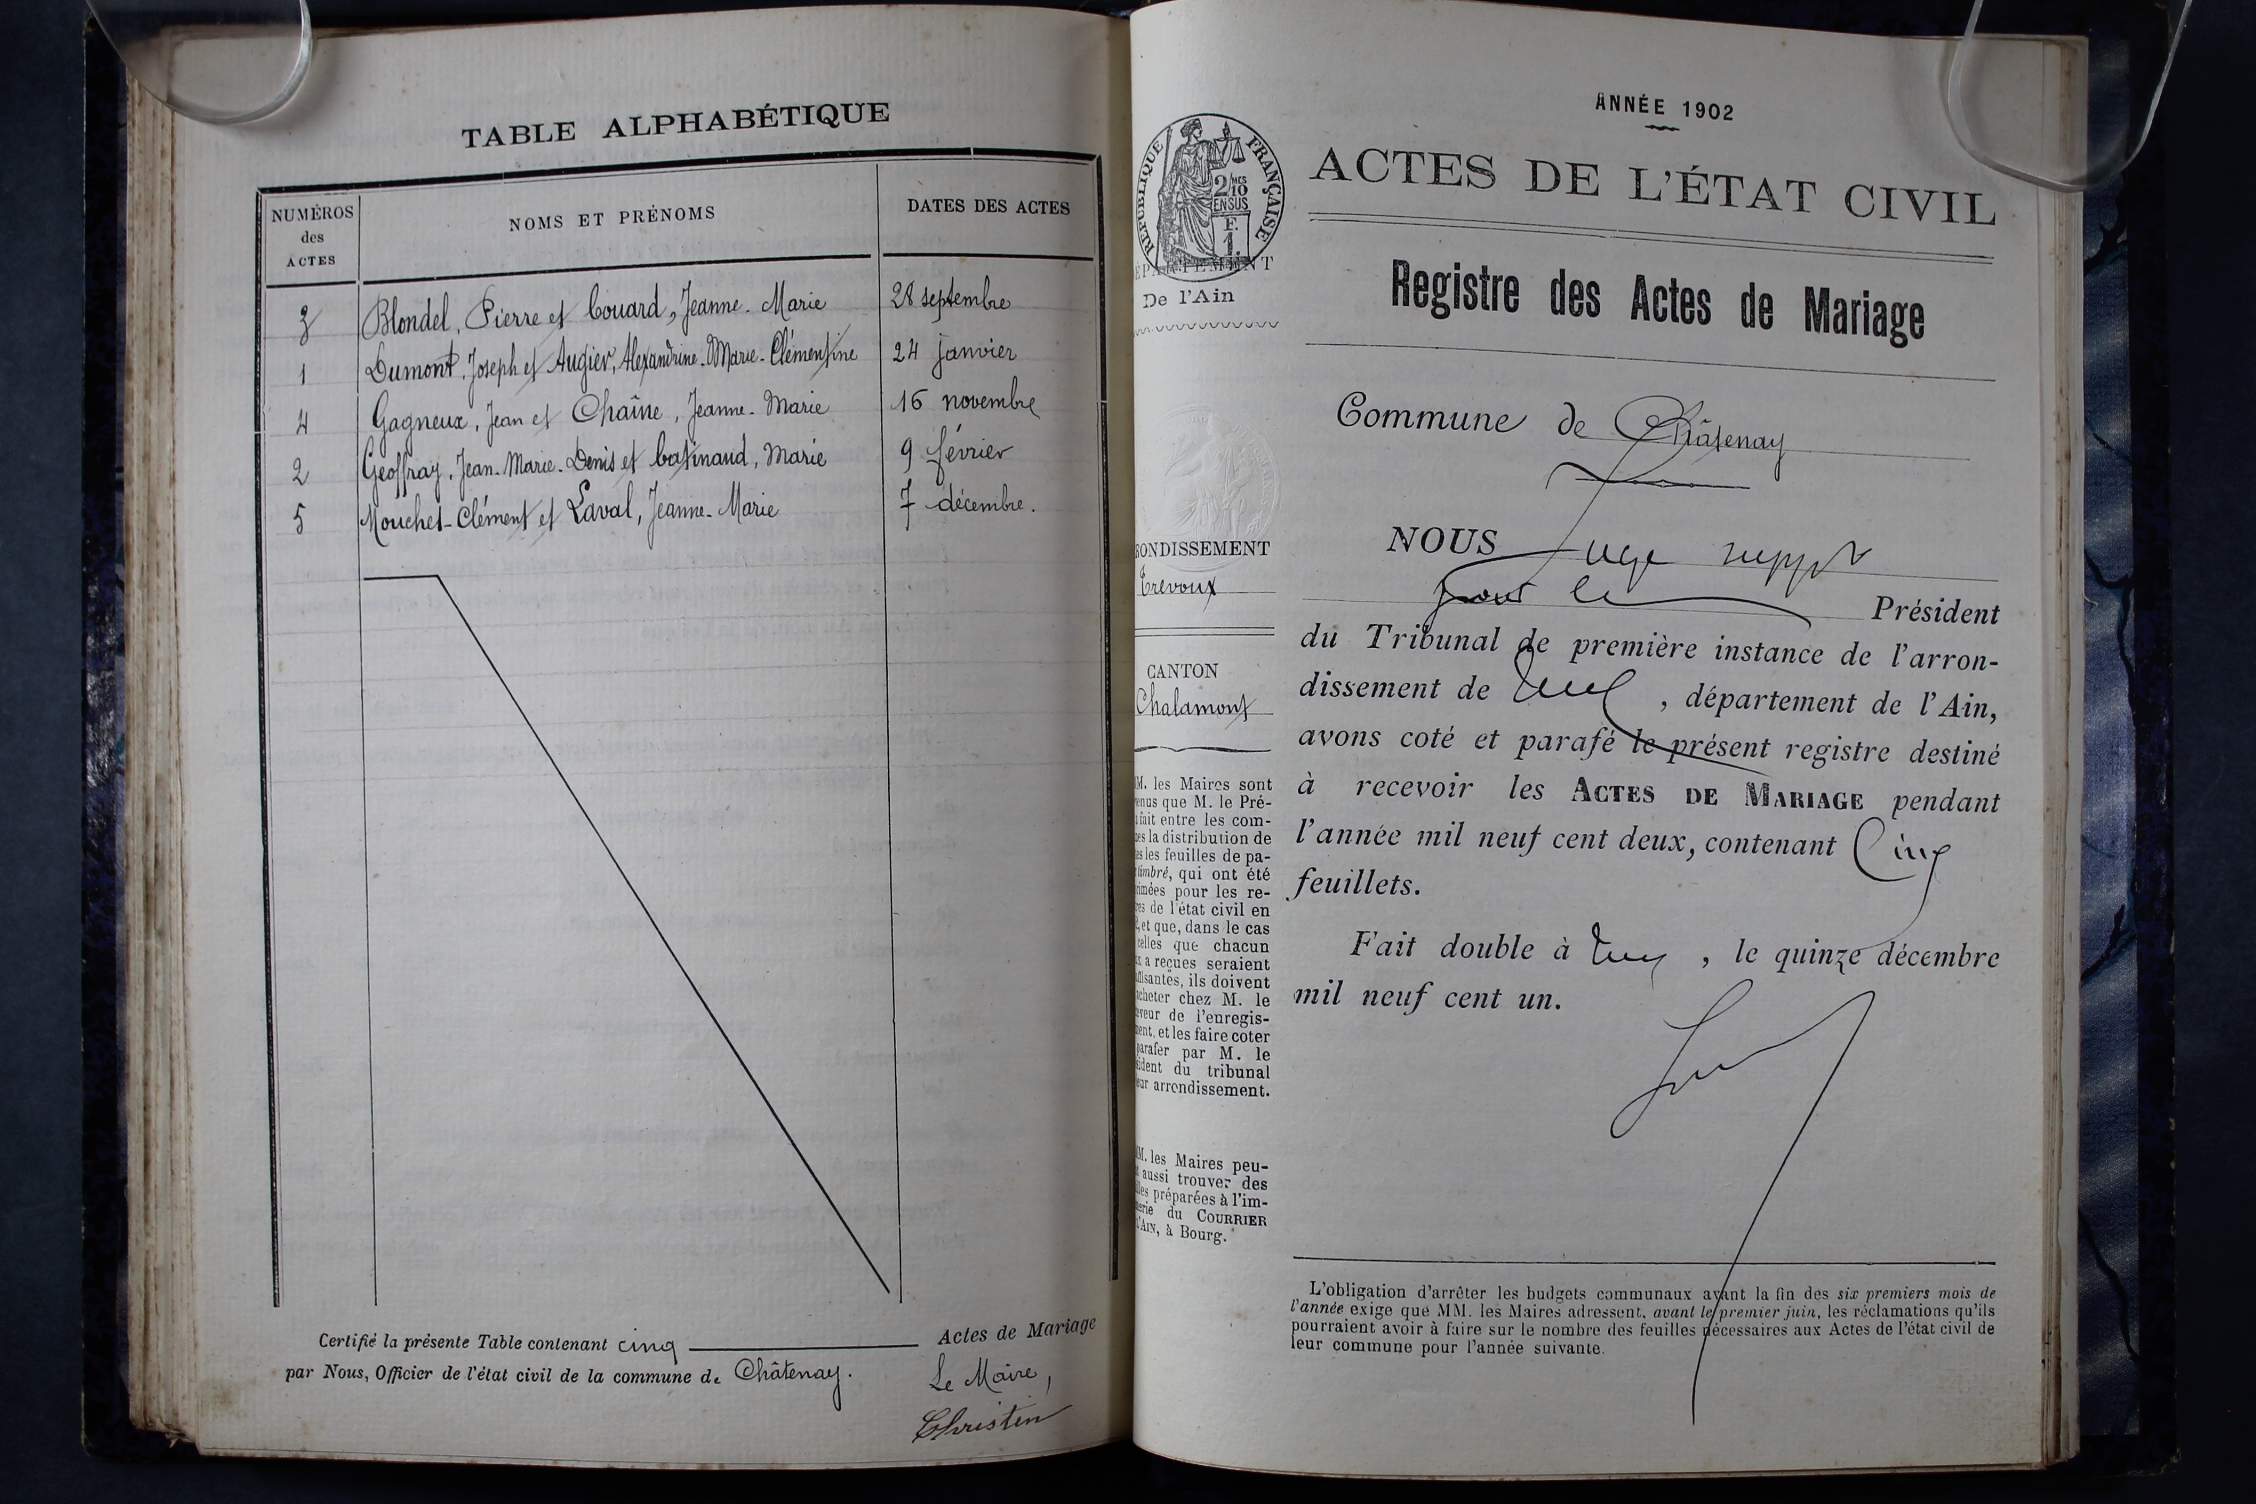 TABLE ALPHABÉTIQUE
NUMÉROS
des
ACTES
NOMS ET PRÉNOMS
DATES DES ACTES
3 Blondel, Pierre et Couard, Jeanne-Marie 28 septembre
1 Dumont, Joseph et Augier, Alexandrine-Marie-Clémentine 24 janvier
4 Gagneux, Jean et Chaîne, Jeanne-Marie 16 novembre
2 Geoffray, Jean-Marie-Denis et Catinaud, Marie 9 février
5 Mouchet-Clément et Laval, Jeanne-Marie 7 décembre.
Certifié la présente Table contenant cinq Actes de Mariage
par Nous, Officier de l'état civil de la commune de Châtenay.
Le Maire,
Christin
ANNÉE 1902
ACTES DE L'ÉTAT CIVIL
Registre des Actes de Mariage
RÉPUBLIQUE FRANÇAISE
2/10 MES
EN SUS
F.
1.
ÉPARTEMENT
De l'Ain
ONDISSEMENT
Trévoux
CANTON
Chalamont
M. les Maires sont
enus que M. le Pré-
fait entre les com-
es la distribution de
es les feuilles de pa-
timbré, qui ont été
rimées pour les re-
res de l'état civil en
, et que, dans le cas
celles que chacun
x a reçues seraient
ffisantes, ils doivent
cheter chez M. le
eveur de l'enregis-
ent, et les faire coter
parafer par M. le
sident du tribunal
eur arrondissement.
M. les Maires peu-
aussi trouver des
lles préparées à l'im-
erie du COURRIER
l'AIN, à Bourg.
Commune de Châtenay
NOUS Juge suppt
pour le Président
du Tribunal de première instance de l'arron-
dissement de , département de l'Ain,
avons coté et parafé le présent registre destiné
à recevoir les ACTES DE MARIAGE pendant
l'année mil neuf cent deux, contenant Cinq
feuillets.
Fait double à , le quinze décembre
mil neuf cent un.
L'obligation d'arrêter les budgets communaux avant la fin des six premiers mois de
l'année exige que MM. les Maires adressent, avant le premier juin, les réclamations qu'ils
pourraient avoir à faire sur le nombre des feuilles nécessaires aux Actes de l'état civil de
leur commune pour l'année suivante.